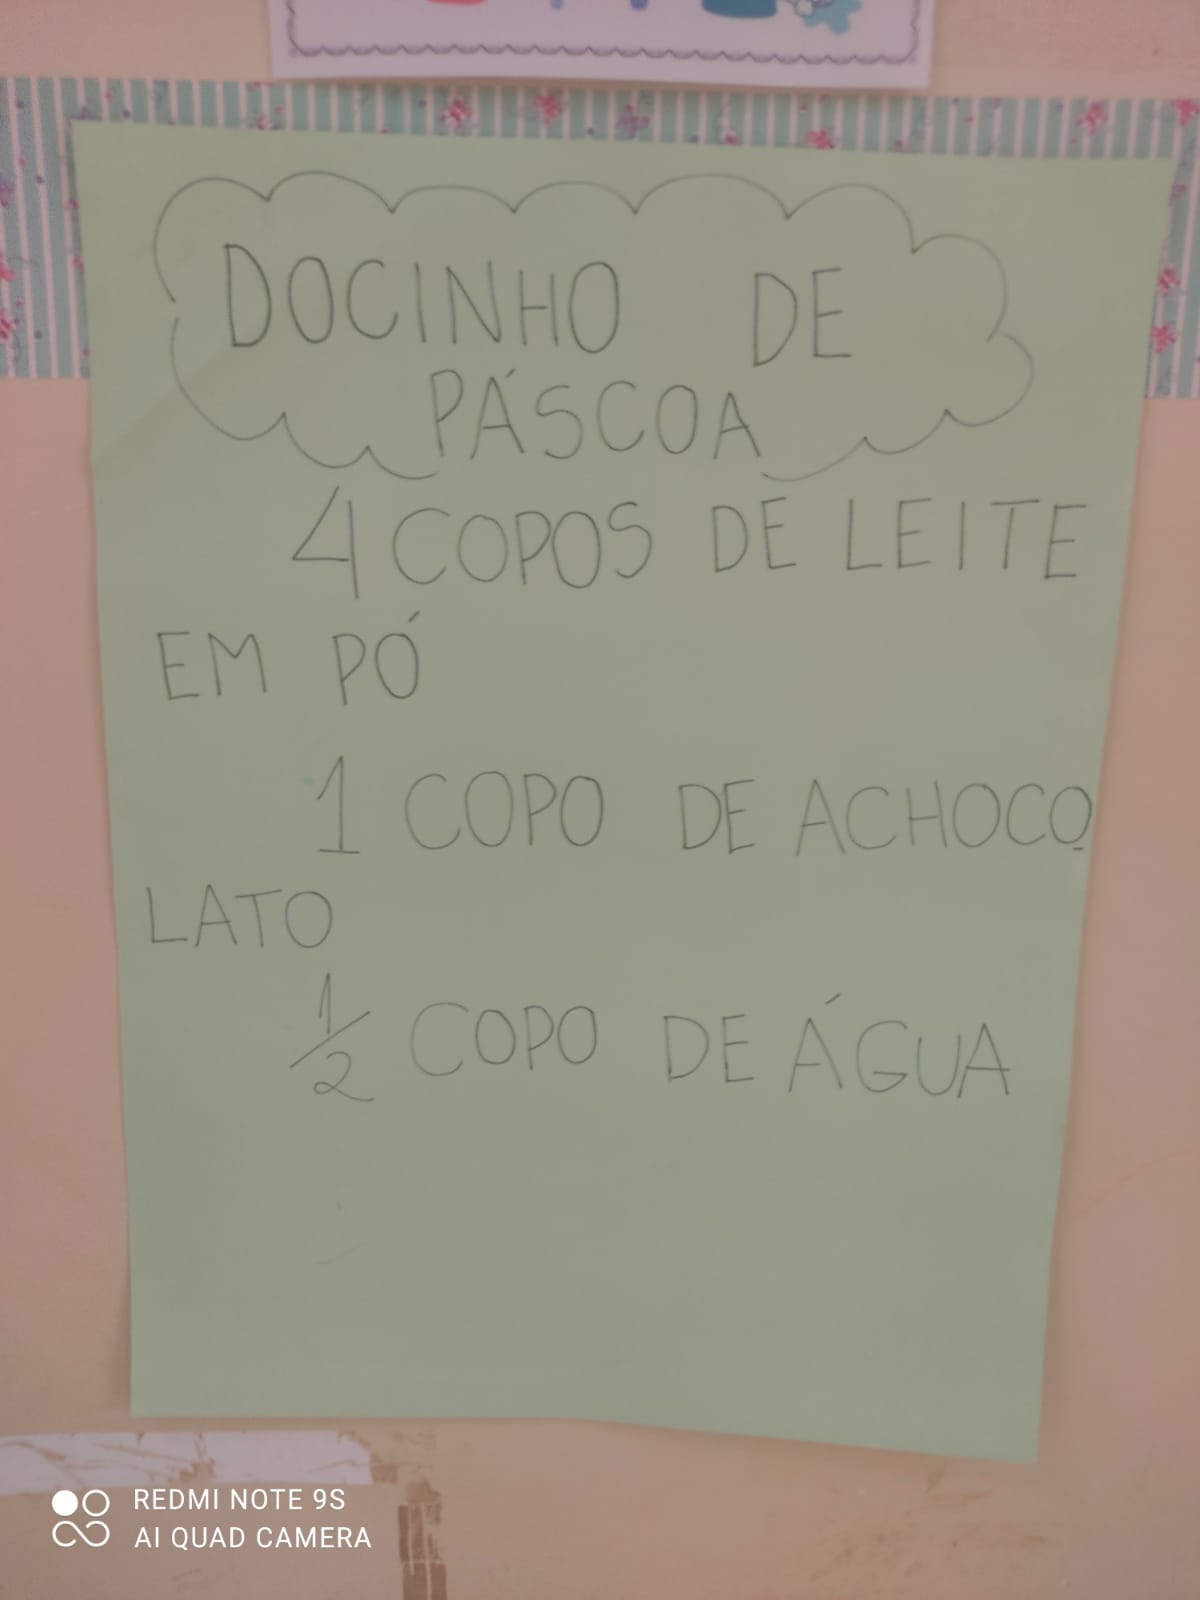 DOCINHO DE
PÁSCOA
4 COPOS DE LEITE
EM PÓ
1 COPO DE ACHOCO
LATO
1/2 COPO DE ÁGUA
REDMI NOTE 9S
AI QUAD CAMERA